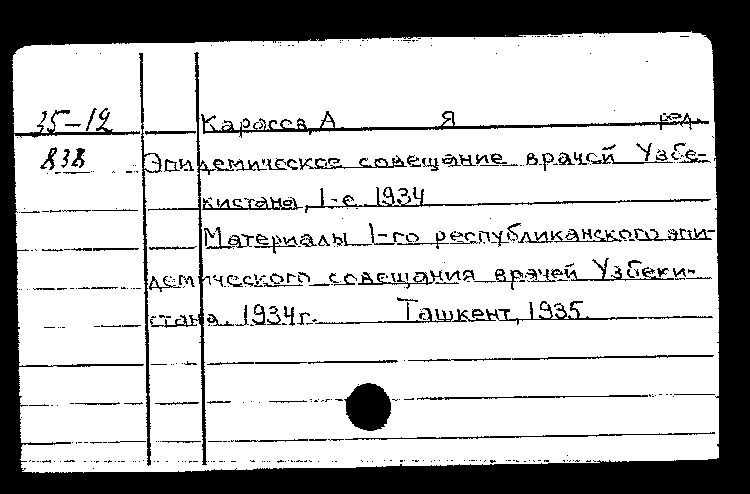 35-12 Карасев, А Я ред.
838 Эпидемическое совещание врачей Узбе-
кистана, 1-е 1934
Материалы 1-го республиканского эпи-
демического совещания врачей Узбеки-
стана. 1934г. Ташкент, 1935.